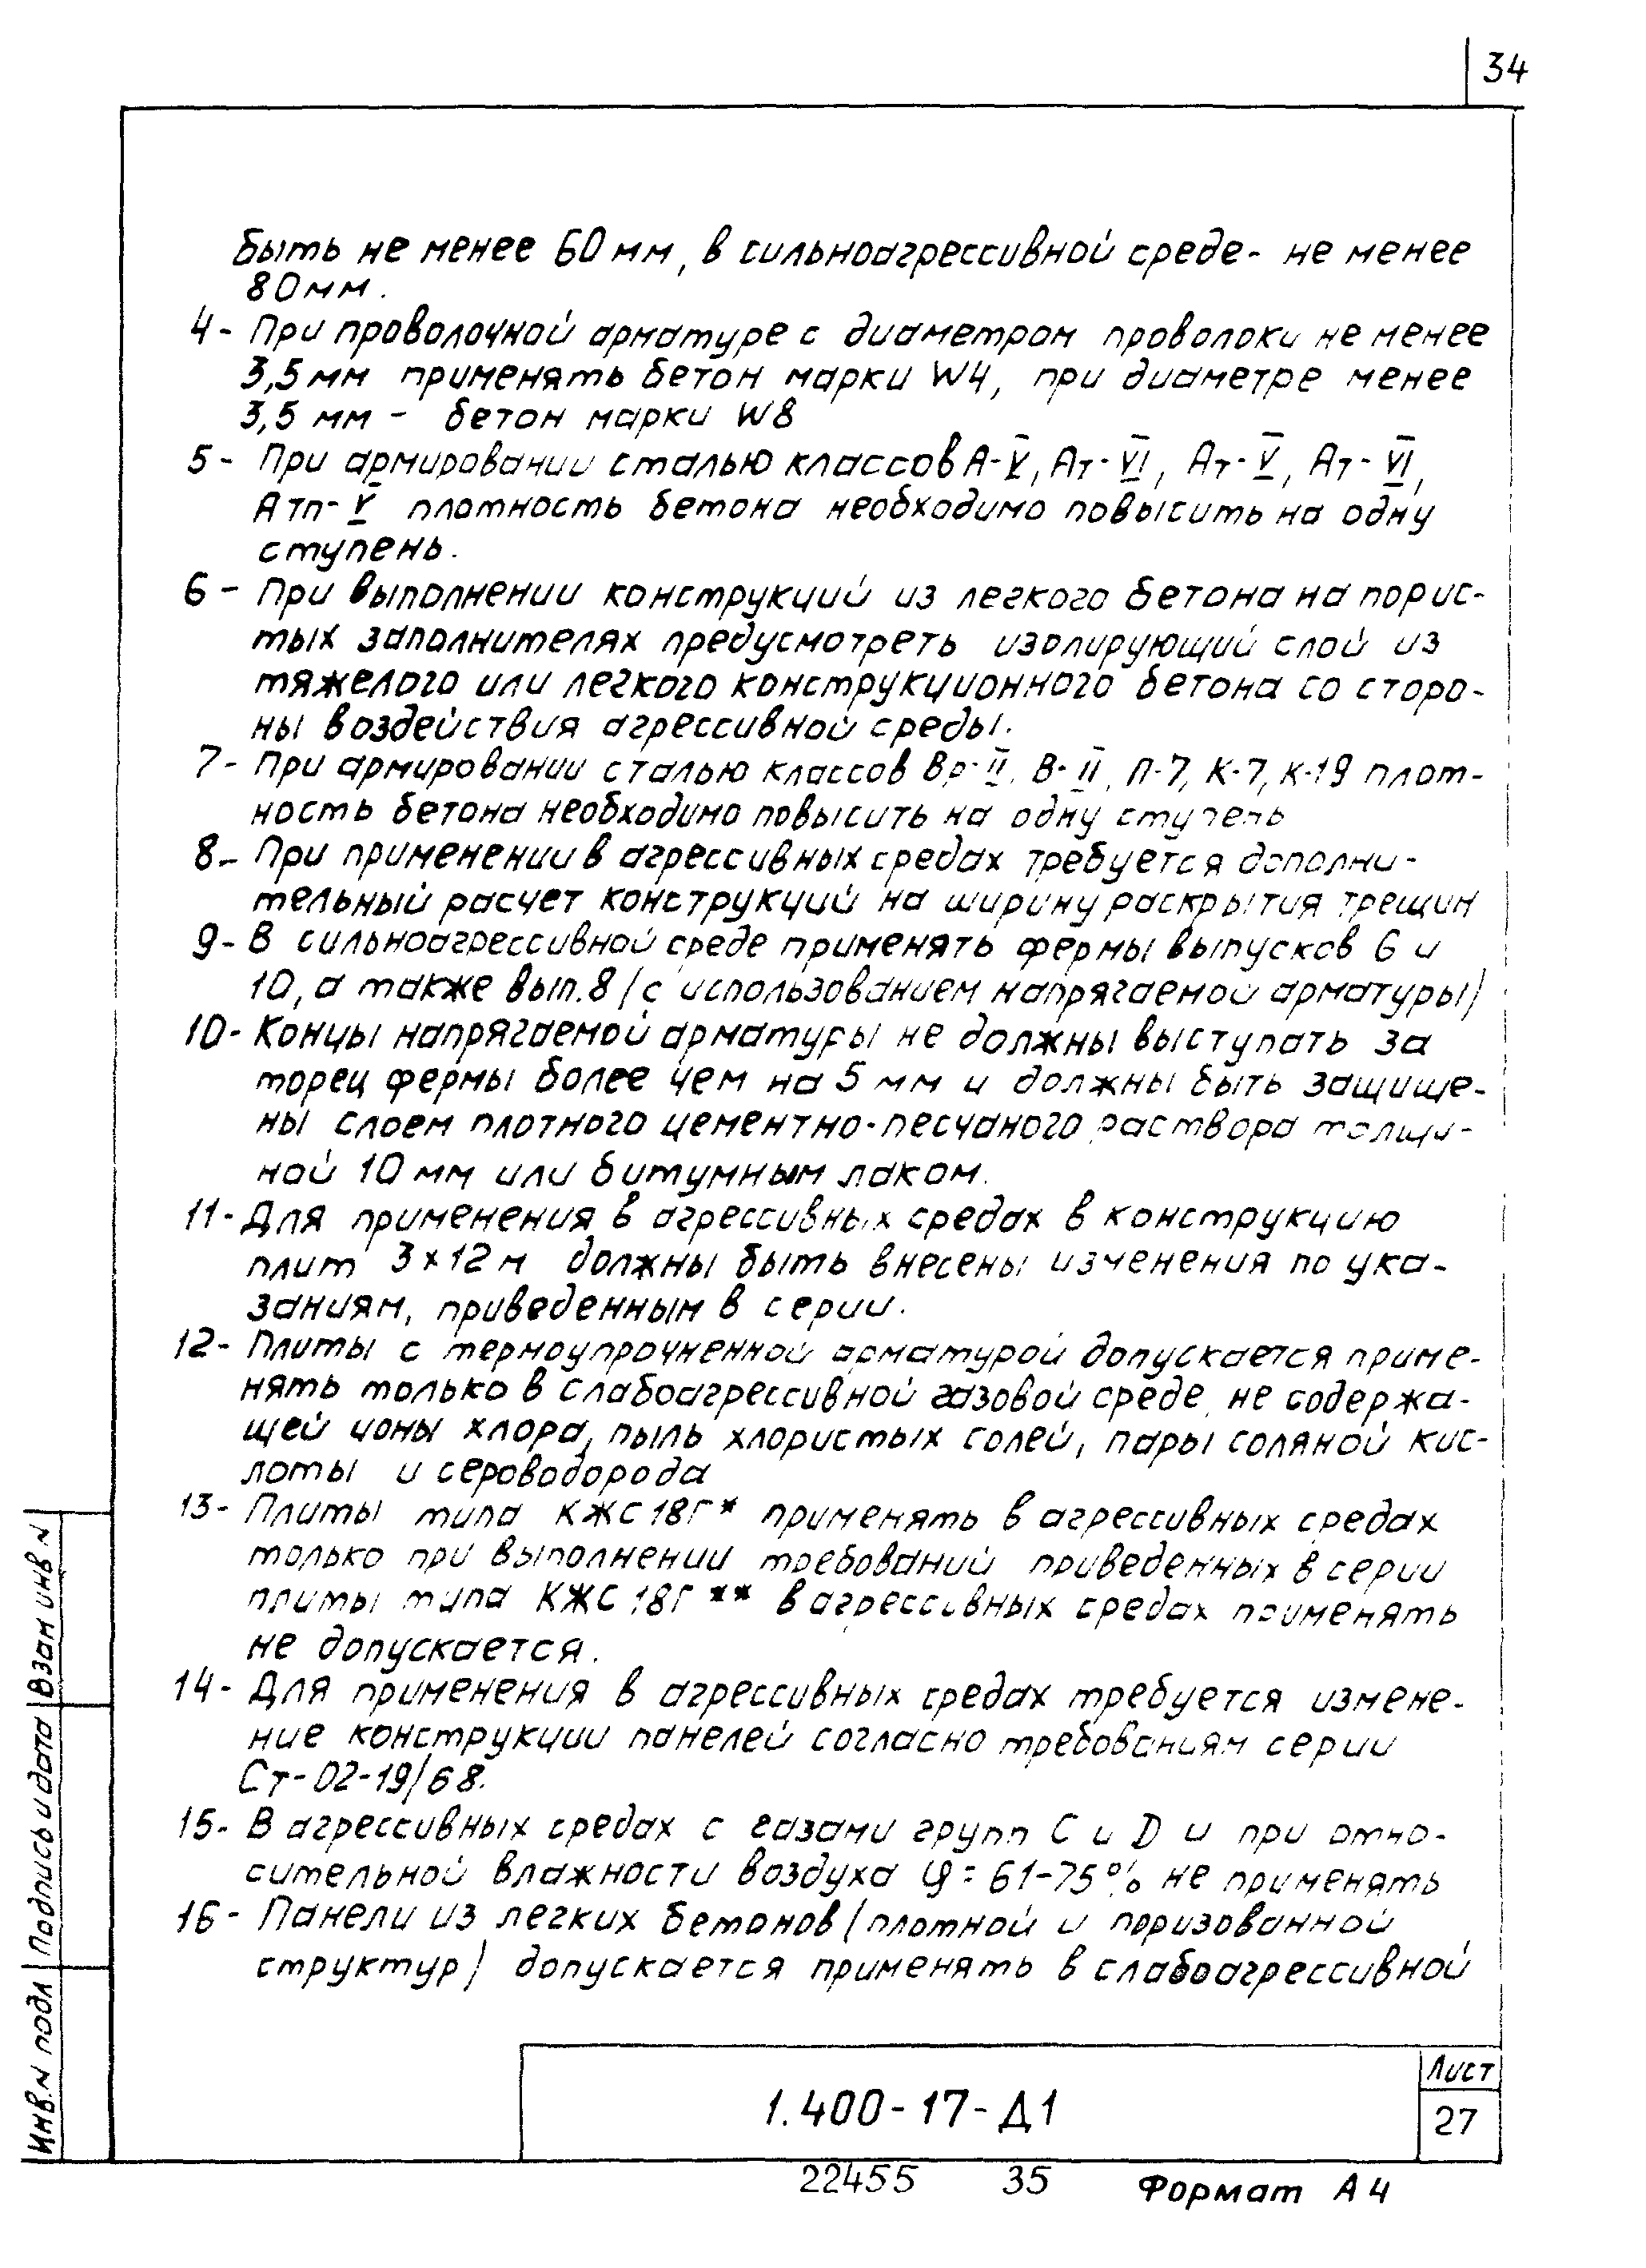 34
быть не менее 60 мм, в сильноагрессивной среде - не менее
80 мм.
4 - При проволочной арматуре с диаметром проволоки не менее
3,5 мм применять бетон марки W4, при диаметре менее
3,5 мм - бетон марки W8
5 - При армировании сталью классов А-V, Ат-VI, Ат-V, Ат-VI,
Атп-V плотность бетона необходимо повысить на одну
ступень.
6 - При выполнении конструкций из легкого бетона на порис-
тых заполнителях предусмотреть изолирующий слой из
тяжелого или легкого конструкционного бетона со сторо-
ны воздействия агрессивной среды.
7 - При армировании сталью классов Вр-II, В-II, П-7, К-7, К-19 плот-
ность бетона необходимо повысить на одну ступень
8 - При применении в агрессивных средах требуется дополни-
тельный расчет конструкций на ширину раскрытия трещин
9 - В сильноагрессивной среде применять фермы выпусков 6 и
10, а также вып. 8 /с использованием напрягаемой арматуры/
10 - Концы напрягаемой арматуры не должны выступать за
торец фермы более чем на 5 мм и должны быть защище-
ны слоем плотного цементно-песчаного раствора толщи-
ной 10 мм или битумным лаком.
11 - Для применения в агрессивных средах в конструкцию
плит 3х12 м должны быть внесены изменения по ука-
заниям, приведенным в серии.
12 - Плиты с термоупрочненной арматурой допускается приме-
нять только в слабоагрессивной газовой среде, не содержа-
щей ионы хлора, пыль хлористых солей, пары соляной кис-
лоты и сероводорода
13 - Плиты типа КЖС 18Г* применять в агрессивных средах
только при выполнении требований приведенных в серии
плиты типа КЖС 18Г ** в агрессивных средах применять
не допускается.
14 - Для применения в агрессивных средах требуется измене-
ние конструкции панелей согласно требованиям серии
Ст-02-19/68.
15 - В агрессивных средах с газами групп С и D и при отно-
сительной влажности воздуха φ = 61-75% не применять
16 - Панели из легких бетонов /плотной и поризованной
структур/ допускается применять в слабоагрессивной
Инв. N подл
Подпись и дата
Взам инв N
1.400-17-Д1
Лист
27
22455 35 Формат А4